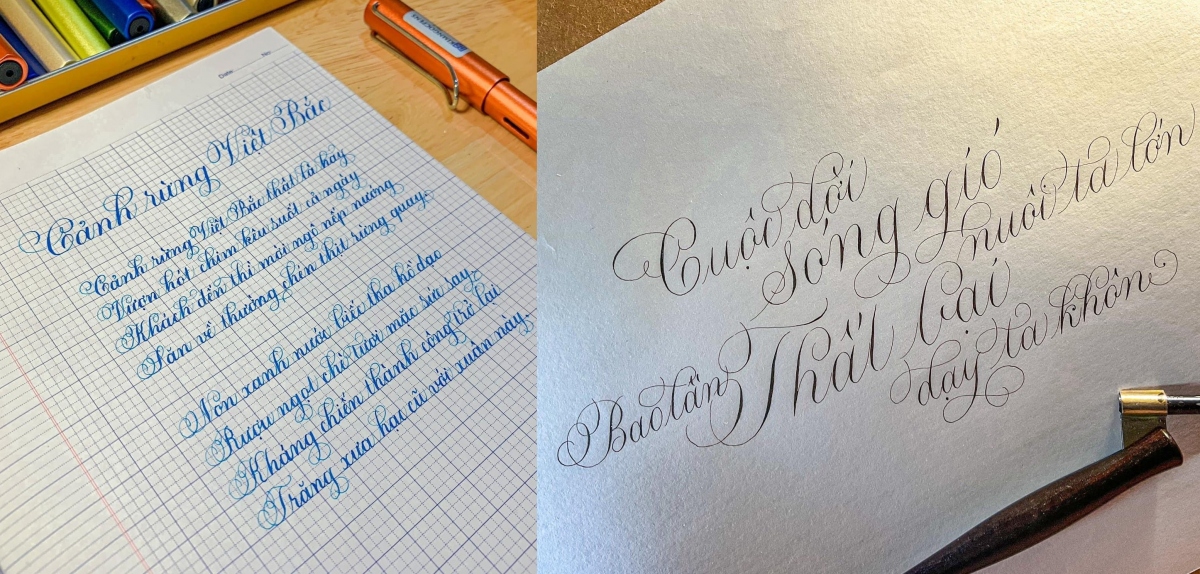 Date
No.
Cảnh rừng Việt Bắc
Cảnh rừng Việt Bắc thật là hay
Vượn hót chim kêu suốt cả ngày
Khách đến thì mời ngô nếp nướng
Săn về thường chén thịt rừng quay.
Non xanh nước biếc tha hồ dạo
Rượu ngọt chè tươi mặc sức say,
Kháng chiến thành công trở lại
Trăng xưa hạc cũ với xuân này.
Cuộc đời
sóng gió
nuôi ta lớn
Bao lần
Thất bại
dạy ta khôn